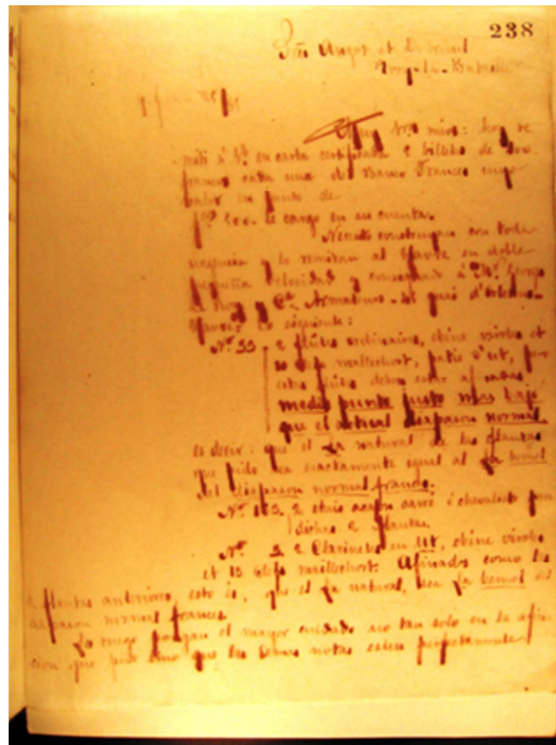 238
Sres Angot et Dubreuil
Ivry-la-Bataille
Muy Sres mios: hoy re
mití á V. en carta certificada 2 billetes de 500
francos cada uno de Banco Frances cuyo
valor en junto de
ps. 200 le cargo en su cuenta.
Necesito construyan con toda
urgencia y lo remitan al Havre en doble
pequeña velocidad y consignado á Mr. George
quai d'Orleans
Havre, lo siguiente:
Nº 55 - 2 flûtes ordinaires, ebène viroles et
clefs maillechort, patte d'ut, pero
estas flûtes deben estar afinadas
medio punto justo mas bajo
que el actual diapason normal
es decir: que el La natural de las flautas
que pido sea exactamente igual al La bemol
del diapason normal frances.
2 etuis acajou carré á chevalets para
dichas 2 flautas
Nº 5 2 Clarinetes en Ut, ebène viroles
et 13 clefs maillechort. Afinados como las
2 flautas anteriores, esto es, que el La natural, sea La bemol del
diapason normal frances.
Le ruego pongan el mayor cuidado no tan solo en la afina
cion que pido sino que las demas notas esten perfectamente